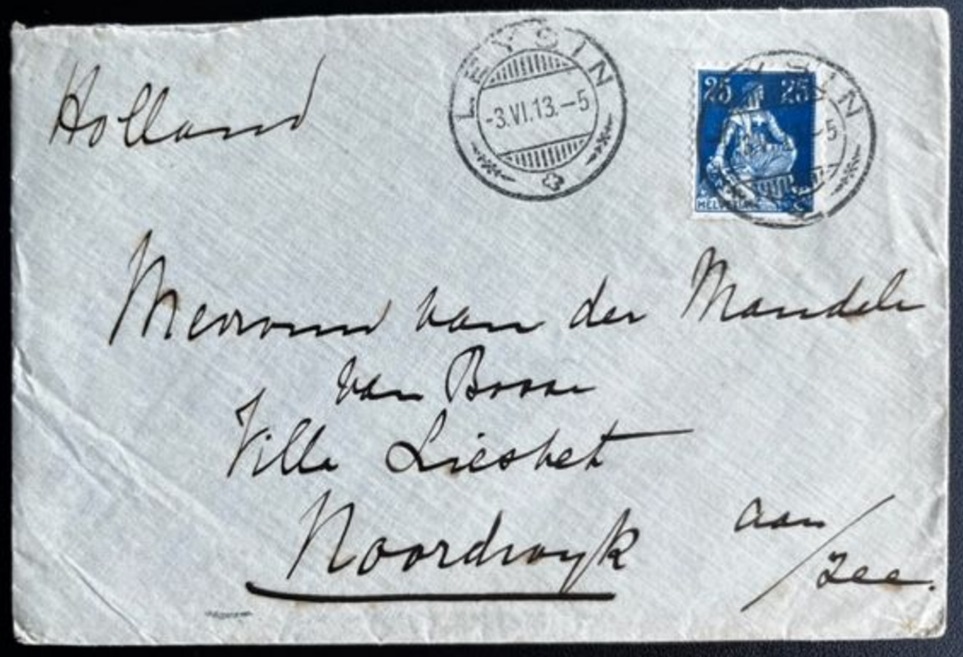 Holland
LEYSIN
-3.VI.13.-5
25 25
HELVETIA
Mevrouw van der Mandele
van Bosse
Villa Liesbet
Noordwyk aan
/ Zee.